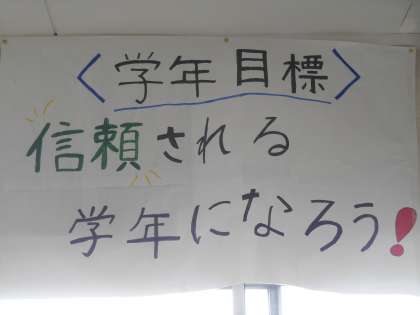 〈学年目標〉
信頼される
学年になろう!